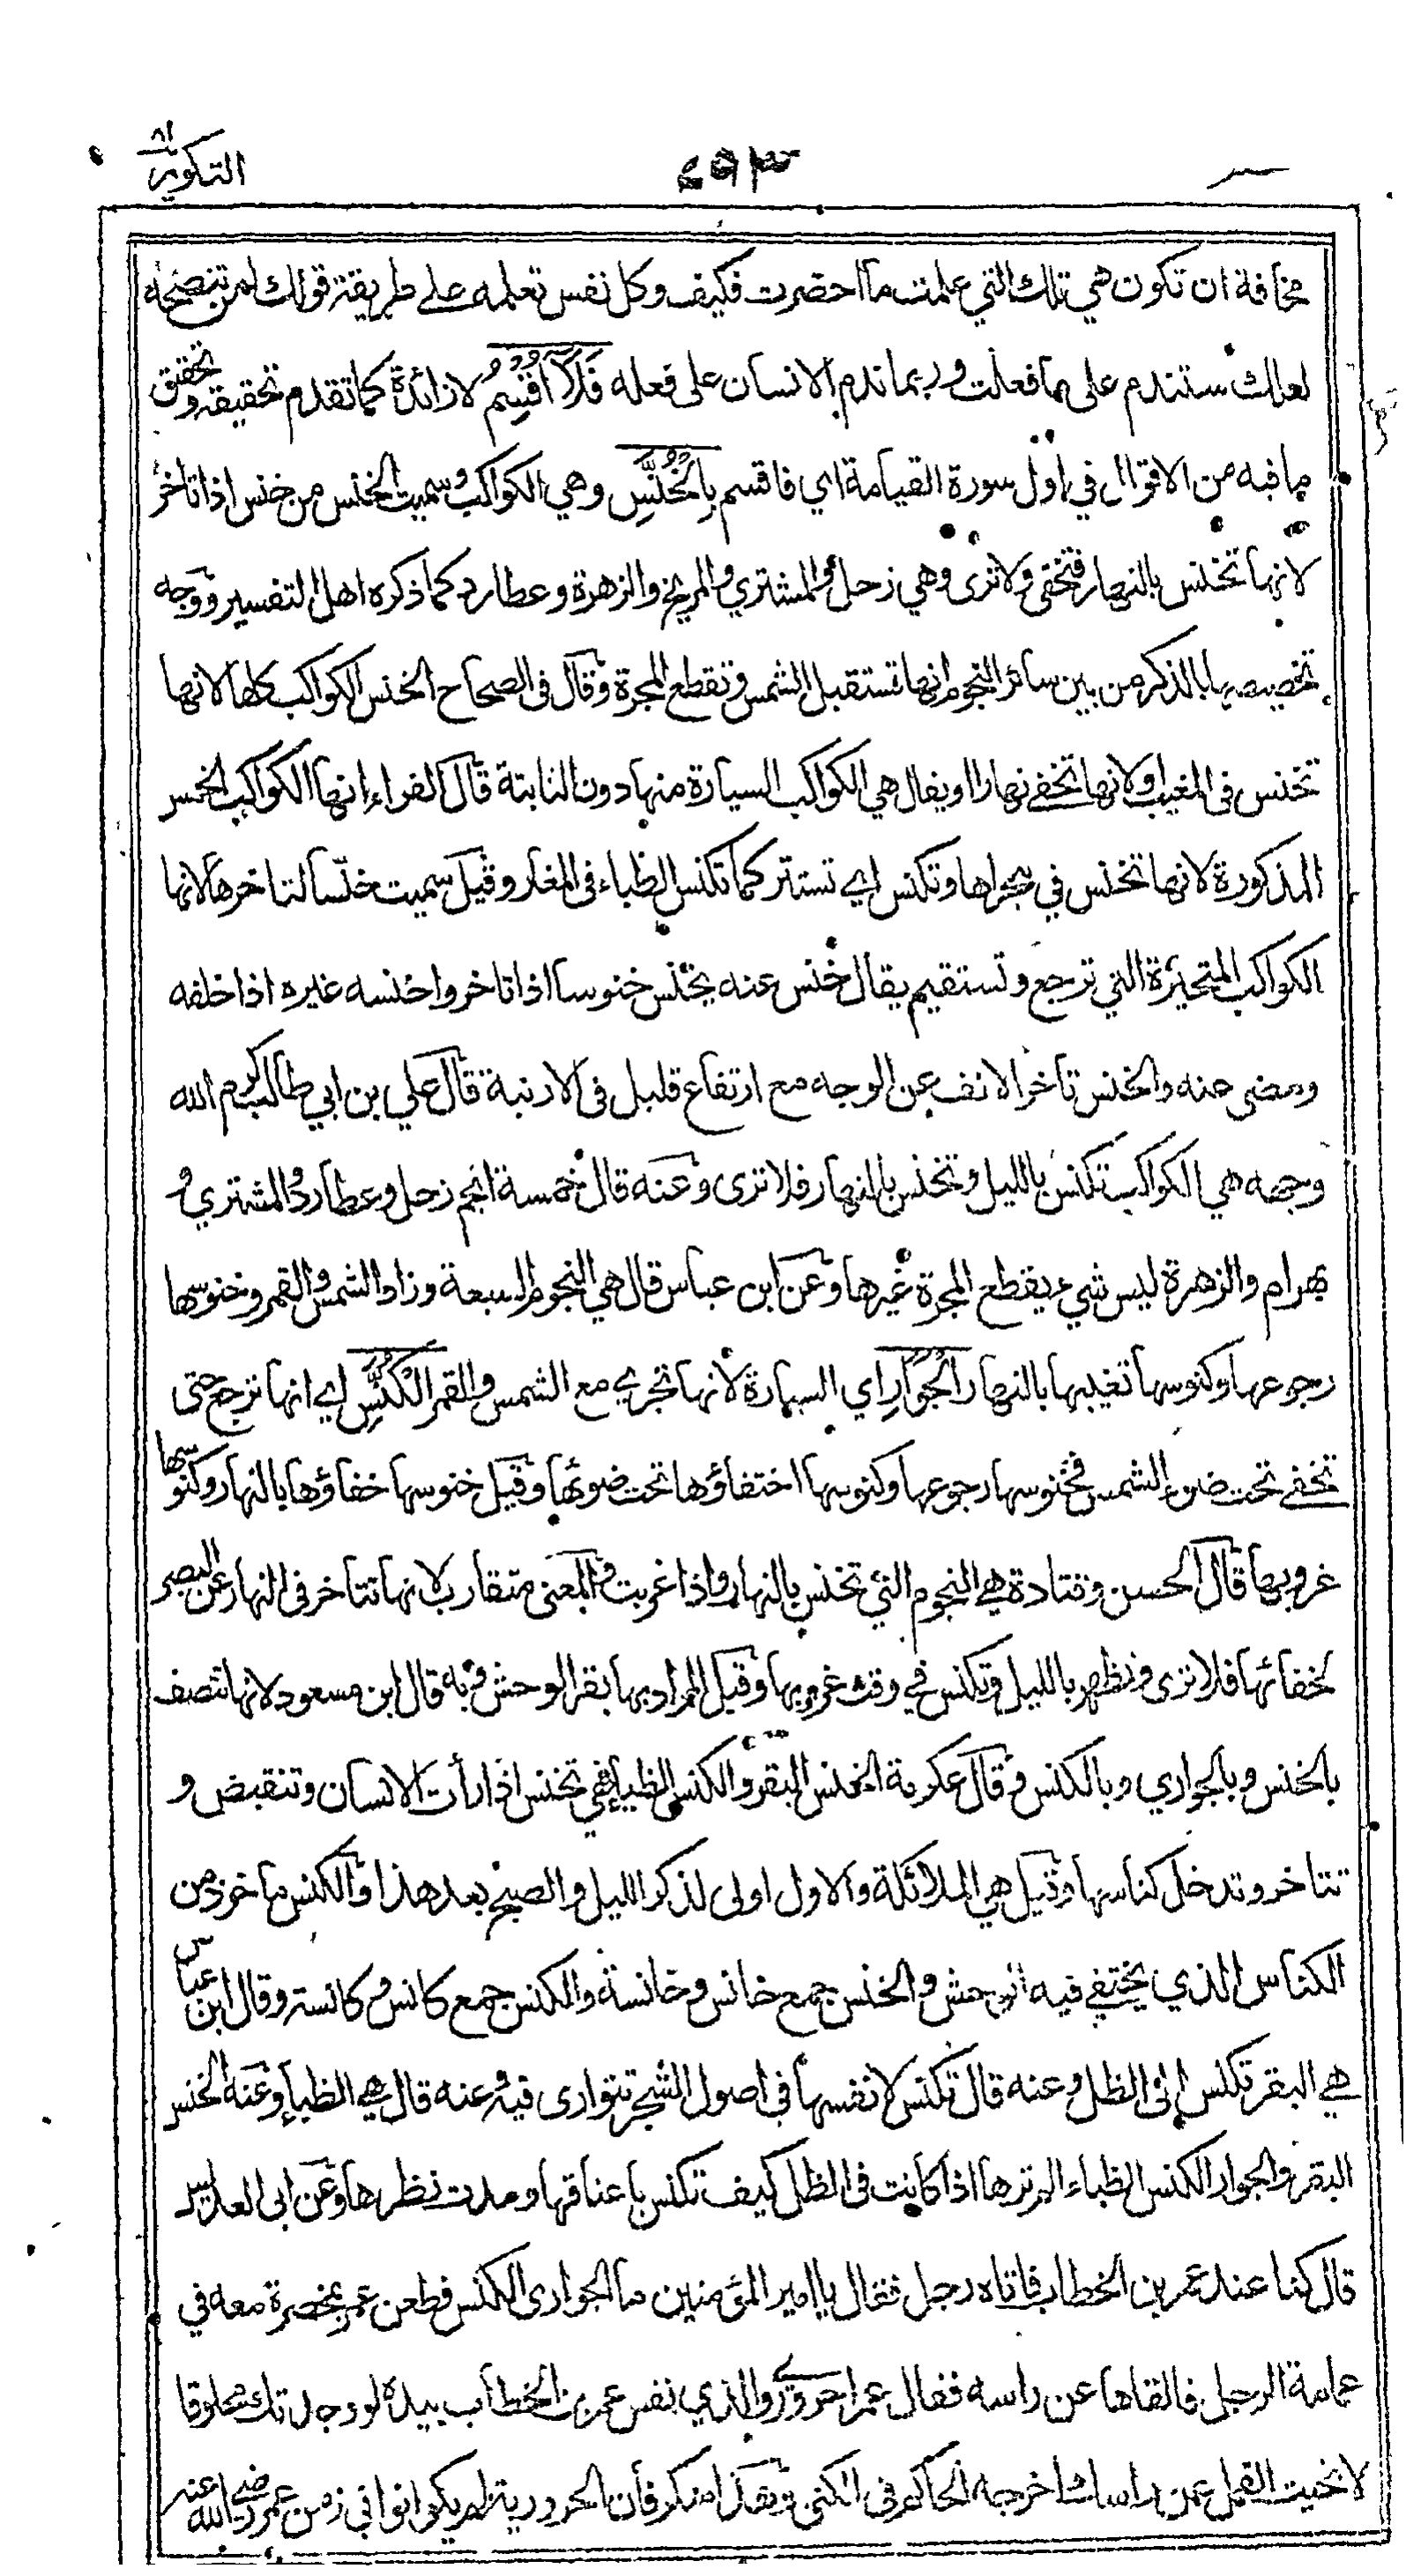 التكوير ٨١
٤٥٣
مخافة ان تكون هي تلك التي علمت ما احضرت فكيف وكل نفس تعلمه على طريقة قولك لمن تنصحه
لعلك ستندم على ما فعلت وربما ندم الانسان على فعله فَلَا أُقْسِمُ لا زائدة كما تقدم تحقيقه وتحقيق
ما فيه من الاقوال في اول سورة القيامة اي فاقسم بِالْخُنَّسِ وهي الكواكب وسميت الخنس من خنس اذا تاخر
لانها تخنس بالنهار فتخفى ولا ترى وهي زحل والمشتري والمريخ والزهرة وعطارد كما ذكره اهل التفسير ووجه
تخصيصها بالذكر من بين سائر النجوم انها تستقبل الشمس وتقطع المجرة وقال في الصحاح الخنس الكواكب كلها لانها
تخنس في المغيب ولانها تخفى نهارا او يقال هي الكواكب السيارة منها دون الثابتة قال الفراء انها الكواكب الخمس
المذكورة لانها تخنس في مجراها وتكنس اي تستتر كما تكنس الظباء في المغار وقيل سميت خنّسا لتاخرها لانها
الكواكب المتحيرة التي ترجع وتستقيم يقال خنس عنه يخنس خنوسا اذا تاخر واخنسه غيره اذا خلفه
ومضى عنه والخنس تاخر الانف عن الوجه مع ارتفاع قليل في الارنبة قال علي بن ابي طالب كرم الله
وجهه هي الكواكب تكنس بالليل وتخنس بالنهار فلا ترى وعنه قال خمسة انجم زحل وعطارد والمشتري و
بهرام والزهرة ليس شيء يقطع المجرة غيرها وعن ابن عباس قال هي النجوم السبعة وزاد الشمس والقمر وخنوسها
رجوعها وكنوسها تغيبها بالنهار الْجَوَارِ اي السيارة لانها تجري مع الشمس والقمر الْكُنَّسِ اي انها ترجع حتى
تخفى تحت ضوء الشمس فخنوسها رجوعها وكنوسها اختفاؤها تحت ضوئها وقيل خنوسها خفاؤها بالنهار وكنوسها
غروبها قال الحسن وقتادة هي النجوم التي تخنس بالنهار واذا غربت والمعنى متقارب لانها تتاخر في النهار عن البصر
لخفائها فلا ترى وتظهر بالليل وتكنس في وقت غروبها وقيل المراد بها بقر الوحش وبه قال ابن مسعود لانها تتصف
بالخنس وبالجواري وبالكنس وقال عكرمة الخنس البقر والكنس الظباء فهي تخنس اذا رأت الانسان وتنقبض و
تتاخر وتدخل كناسها وقيل هي الملائكة والاول اولى لذكر الليل والصبح بعد هذا والكنس ماخوذ من
الكناس الذي يختفي فيه الوحش والخنس جمع خانس وخانسة والكنس جمع كانس وكانسة وقال ابن عباس
هي البقر تكنس الى الظل وعنه قال تكنس لانفسها في اصول الشجر تتوارى فيه وعنه قال هي الظباء وعنه الخنس
البقر والجوار الكنس الظباء الم ترها اذا كانت في الظل كيف تكنس باعناقها ومدت نظرها وعن ابى العدبس
قال كنا عند عمر بن الخطاب فاتاه رجل فقال يا امير المؤمنين ما الجواري الكنس فطعن عمر بمخصرة معه في
عمامة الرجل فالقاها عن راسه فقال عمر احروري والذي نفس عمر بن الخطاب بيده لو وجدتك محلوقا
لانحيت القمل عن راسك اخرجه الحاكم في الكنى وهذا منكر فأن الحرورية لم يكونوا في زمن عمر رضي الله عنه